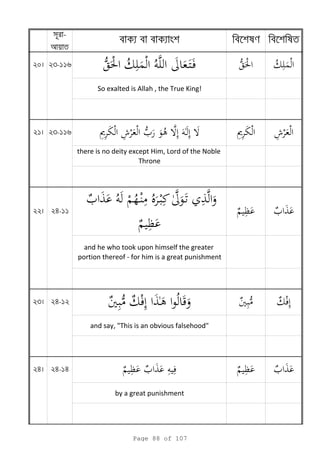 সূরা-
আয়াত
বাক্য বা বাক্যাংশ
বিশেষণ
বিশেষিত
২০। ২৩-১১৬
فَتَعَالَى اللَّهُ الْمَلِكُ الْحَقُّ
الْحَقُّ
الْمَلِكُ
So exalted is Allah , the True King!
২১। ২৩-১১৬
لَا إِلَٰهَ إِلَّا هُوَ رَبُّ الْعَرْشِ الْكَرِيمِ
الْكَرِيمِ
الْعَرْشِ
there is no deity except Him, Lord of the Noble
Throne
২২। ২৪-১১
وَالَّذِي تَوَلَّىٰ كِبْرَهُ مِنْهُمْ لَهُ عَذَابٌ
عَظِيمٌ
عَظِيمٌ
عَذَابٌ
and he who took upon himself the greater
portion thereof - for him is a great punishment
২৩। ২৪-১২
وَقَالُوا هَٰذَا إِفْكٌ مُّبِينٌ
مُّبِينٌ
إِفْكٌ
and say, "This is an obvious falsehood"
২৪। ২৪-১৪
فِيهِ عَذَابٌ عَظِيمٌ
عَظِيمٌ
عَذَابٌ
by a great punishment
Page 88 of 107